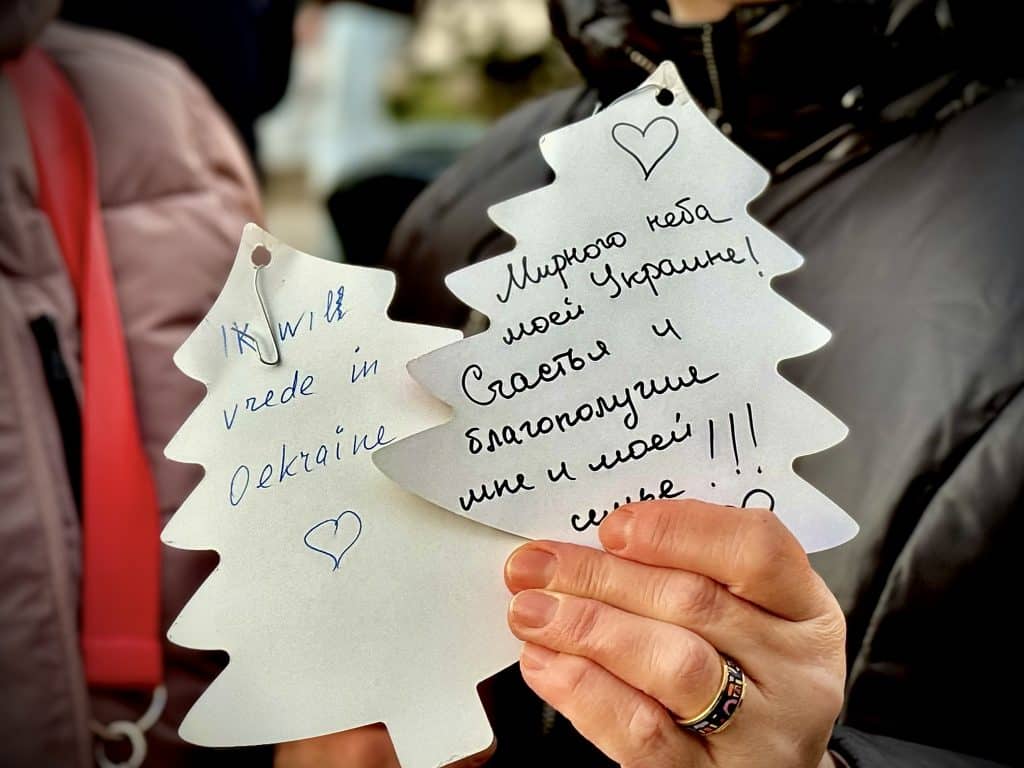 Ik will
vrede in
Oekraïne
Мирного неба
моей Украине!
Счастья и
благополучия
мне и моей!!!
семье